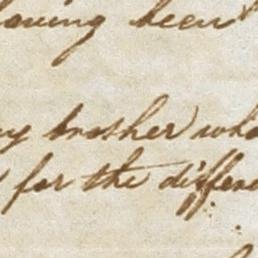 having been
my brother who
for the differen